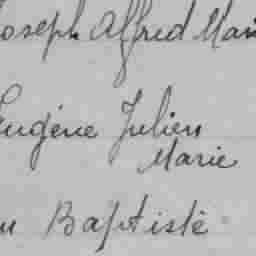 Joseph Alfred Marie
Eugène Julien
Marie
Baptiste